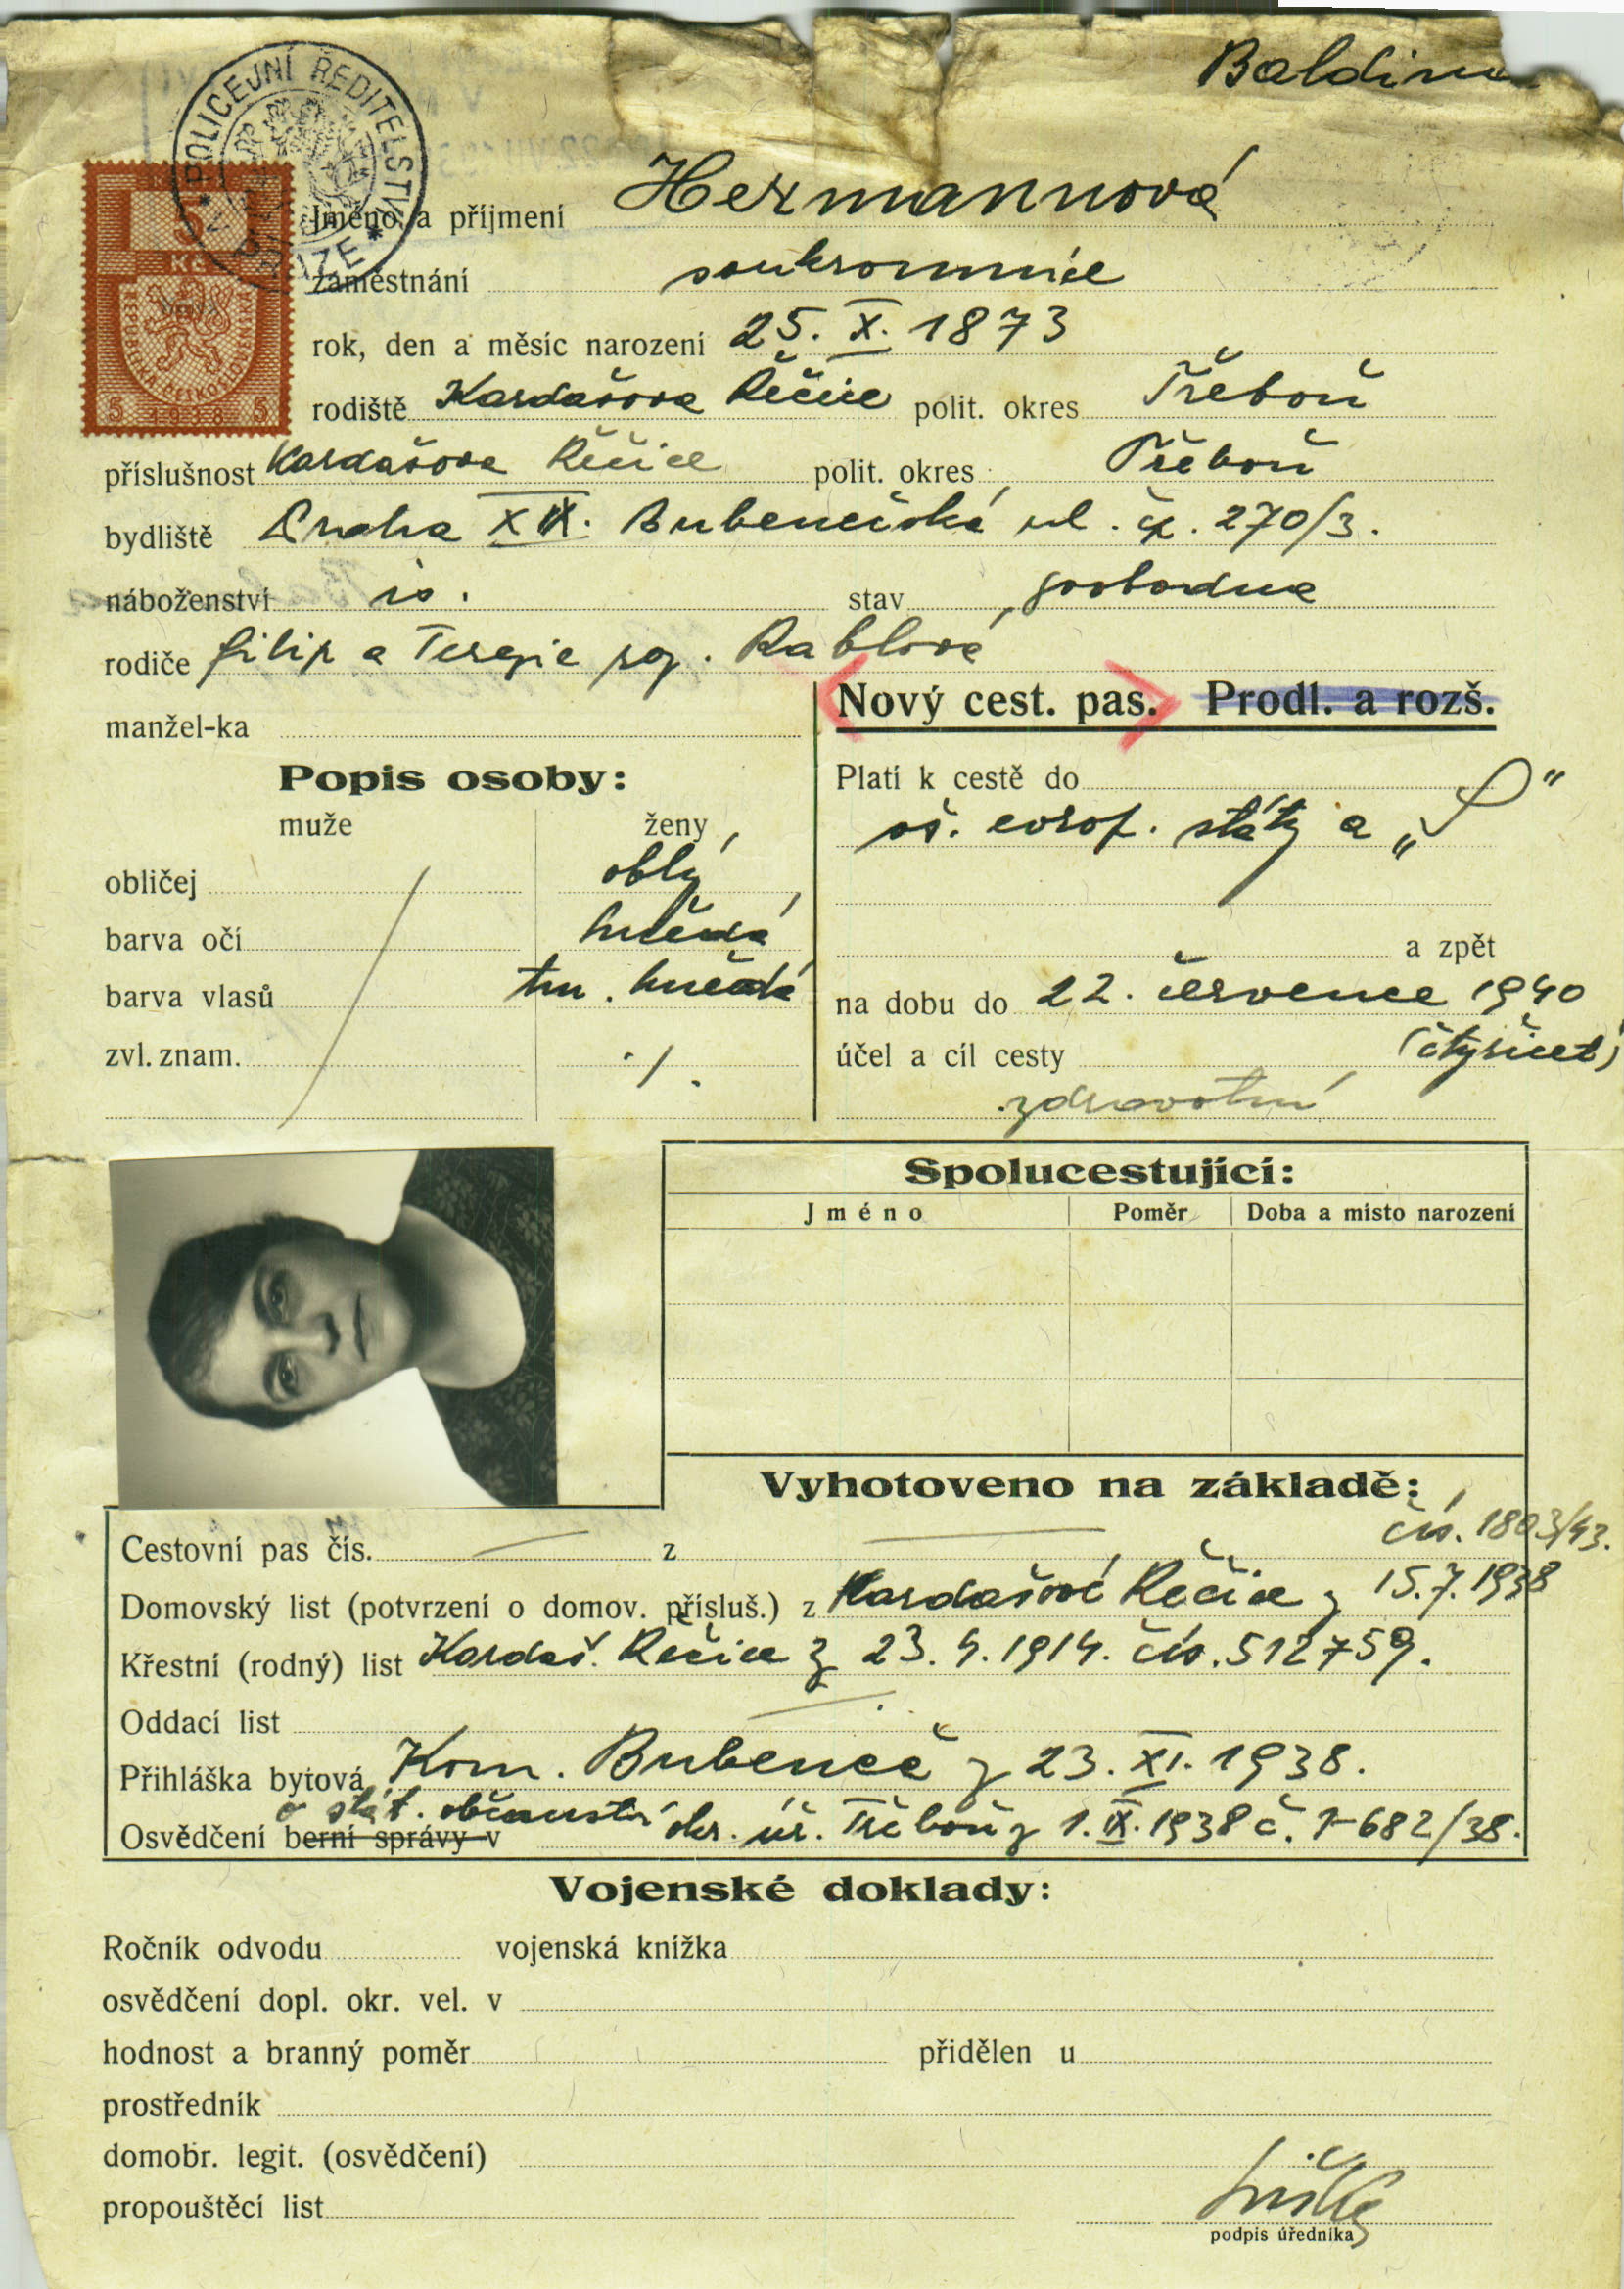 Baldina
POLICEJNÍ ŘEDITELSTVÍ
V PRAZE
5
Kč
REPUBLIKA ČESKOSLOVENSKÁ
5 1938 5
Jméno a příjmení Hermannová
zaměstnání soukromnice
rok, den a měsíc narození 25. X. 1873
rodiště Kardašova Řečice polit. okres Třeboň
příslušnost Kardašova Řečice polit. okres Třeboň
bydliště Praha XIX. Bubenečská ul. čp. 270/3.
náboženství is. stav svobodná
rodiče Filip a Terezie roz. Rablová
manžel-ka
Nový cest. pas. Prodl. a rozš.
Popis osoby:
muže ženy
obličej oblý
barva očí hnědá
barva vlasů tm. hnědá
zvl. znam. ./.
Platí k cestě do
vš. evrop. státy a „S“
a zpět
na dobu do 22. července 1940
(čtyřicet)
účel a cíl cesty
zdravotní
Spolucestující:
Jméno Poměr Doba a místo narození
Vyhotoveno na základě:
Cestovní pas čís. — z — čís. 1803/43.
Domovský list (potvrzení o domov. přísluš.) z Kardašové Řečice z 15.7.1938
Křestní (rodný) list Kardaš. Řečice z 23. 4. 1914. čís. 512759.
Oddací list —
Přihláška bytová Kom. Bubeneč z 23. XI. 1938.
o stát. občanství
Osvědčení berní správy v okr. úř. Třeboň z 1. IX. 1938 č. 1-682/38.
Vojenské doklady:
Ročník odvodu vojenská knížka
osvědčení dopl. okr. vel. v
hodnost a branný poměr přidělen u
prostředník
domobr. legit. (osvědčení)
propouštěcí list
podpis úředníka